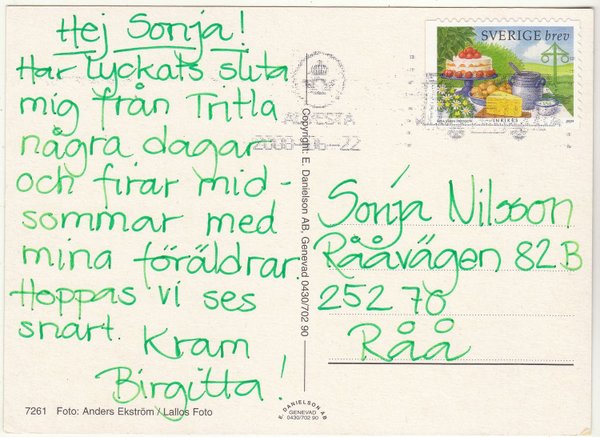 Hej Sonja!
Har lyckats slita
mig från Tritla
några dagar
och firar mid-
sommar med
mina föräldrar
Hoppas vi ses
snart. Kram
Birgitta!
7261 Foto: Anders Ekström / Lallos Foto
Copyright: E. Danielson AB, Genevad 0430/702 90
E. DANIELSON AB
GENEVAD
0430/702 90
SVERIGE brev
INRIKES
ALVESTA
2008-06-22
Sonja Nilsson
Rååvägen 82 B
252 70
Råå